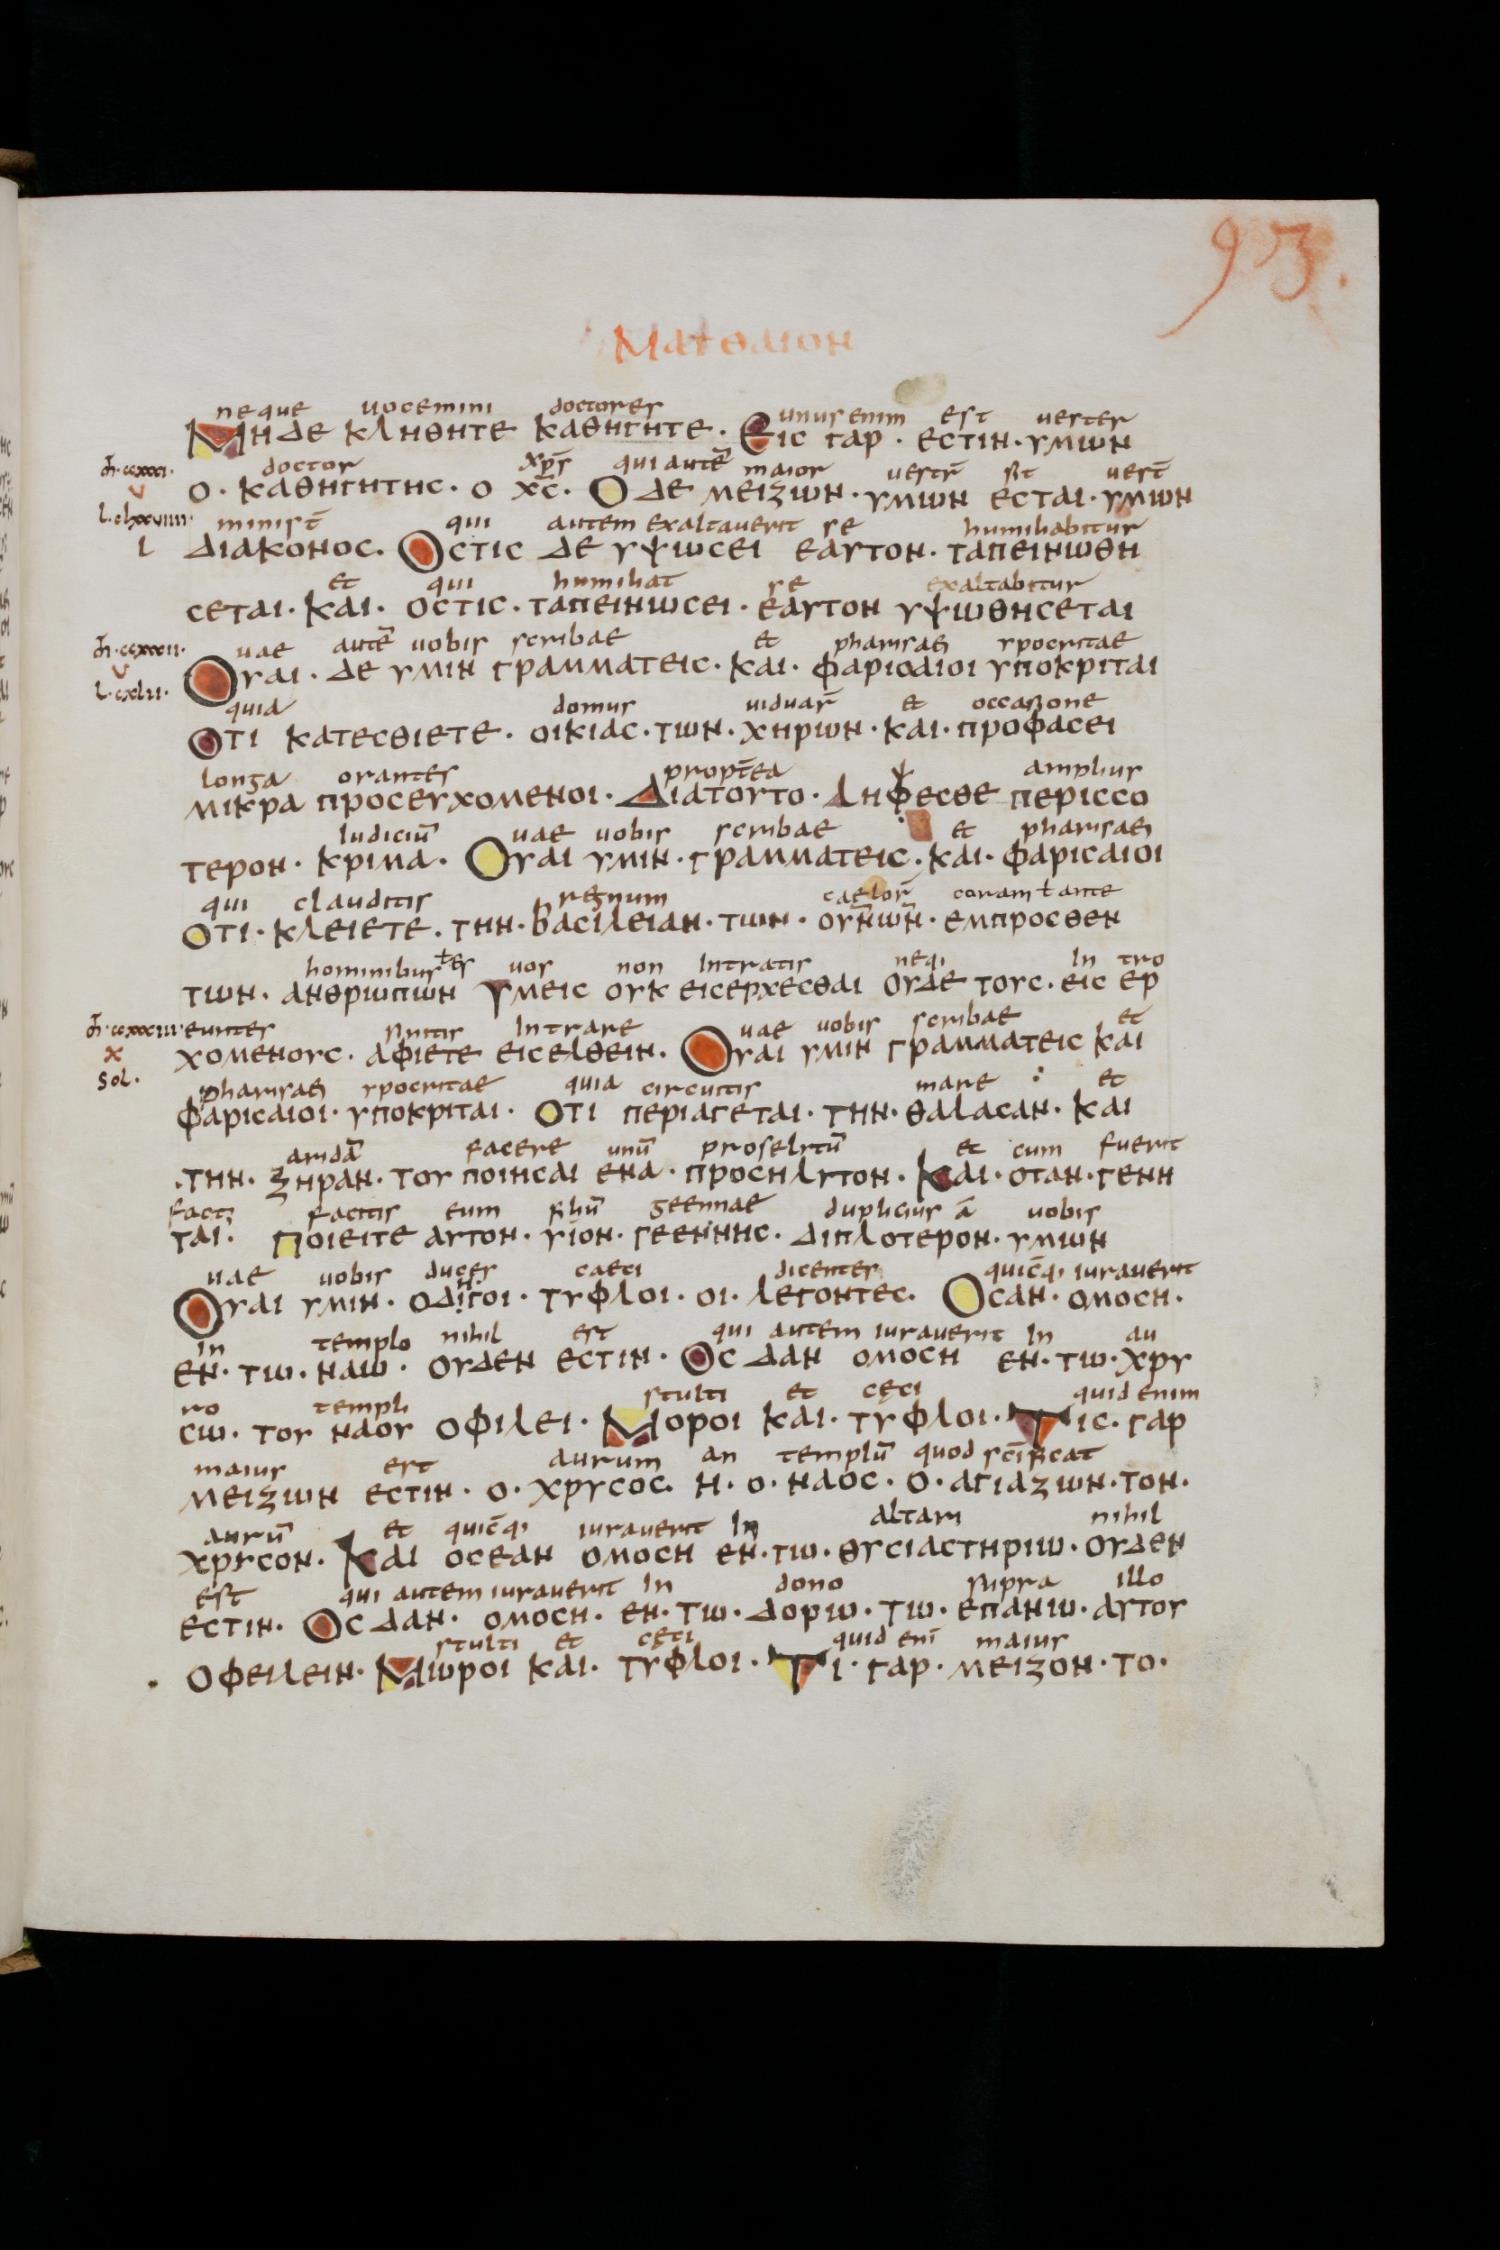 93.
Ματθαιον
neque uocemini doctores unus enim est uester
Μηδε κληθητε καθηγητε· Εις γαρ· εστιν· υμιων
doctor xp̄s qui autē maior uestr̄ sit uest̄
ο· καθηγητης· ο χ̄ς̄· Ο δε μειζων· υμιων εσται· υμων
minist̄ qui autem exaltauerit se humiliabitur
διακονος· Οστις δε υψωσει εαυτον· ταπεινωθη
et qui humiliat se exaltabitur
σεται· Και· οστις· ταπεινωσει· εαυτον υψωθησεται
uae autē uobis scribae et pharisaei ypocritae
Ουαι· δε υμιν γραμματεις· και· φαρισαιοι υποκριται
quia domus uiduar̄ et occasione
Οτι κατεσθιετε· οικιας· των· χηρων· και· προφασει
longa orantes propt̄ea amplius
μικρα προσευχομενοι· Διατουτο· ληφεσθε περισσο
iudiciū uae uobis scribae et pharisaei
τερον· κριμα· Ουαι υμιν· γραμματεις· και· φαρισαιοι
qui clauditis regnum caelor̄ coram ł ante
οτι· κλειετε· την· βασιλειαν· των· ουν̄ων̄· εμπροσθεν
hominibus uos non intratis neqi intro
των· ανθρωπων Υμεις ουκ εισερχεσθαι ουδε τους· εις ερ
euntes sinitis intrare uae uobis scribae et
χομενους· αφιετε εισελθειν· Ουαι υμιν γραμματεις και
pharisaei ypocritae quia circuitis mare et
φαρισαιοι· υποκριται· Οτι περιαγεται· την· θαλασαν· και
aridā facere unū proselytū et cum fuerit
·την· ξηραν· του ποιησαι ενα· προσηλυτον· Και· οταν· γενη
facitis eum filiū geennae duplicius ā uobis
ται· Ποιειτε αυτον· υιον· γεεννης· διπλοτερον· υμων
uae uobis duces caeci dicentes quicq̄i iurauerit
Ουαι υμιν· οδιγοι· τυφλοι· οι· λεγοντες· Οσαν· ομοση·
in templo nihil est qui autem iurauerit in au
εν· τω· ναω· ουδεν εστιν· Ος δαν ομοση εν· τω· χρυ
ro templi stulti et cęci quid enim
σω· του ναου οφιλει· Μοροι και· τυφλοι· Τις· γαρ
maius est aurum an templū quod sc̄ificat
μειζων εστιν· ο· χρυσος· η· ο· ναος· ο· αγιαζων· τον·
aurū et quicq̄i iurauerit in altari nihil
χρυσον· Και οσεαν ομοση εν· τω· θυσιαστηριω· ουδεν
est qui autem iurauerit in dono supra illo
εστιν· Ος δαν· ομοση· εν· τω· δοριω· τω· επανω· αυτου
stulti et cęci quid enī maius
οφειλειν· Μωροι και· τυφλοι· Τι· γαρ· μειζον· το·